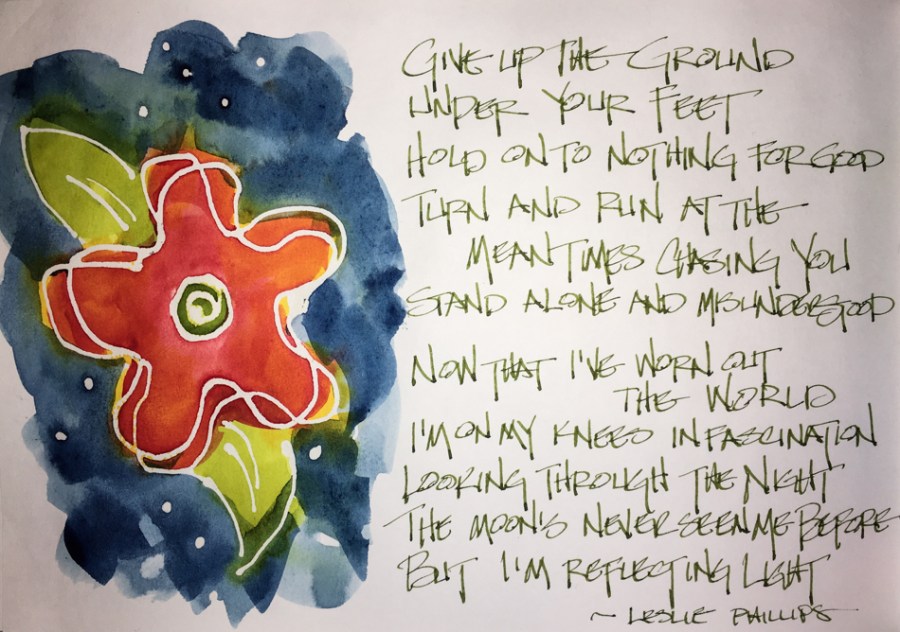 GIVE UP THE GROUND
UNDER YOUR FEET
HOLD ON TO NOTHING FOR GOOD
TURN AND RUN AT THE
MEAN TIMES CHASING YOU
STAND ALONE AND MISUNDERSTOOD
NOW THAT I'VE WORN OUT
THE WORLD
I'M ON MY KNEES IN FASCINATION
LOOKING THROUGH THE NIGHT
THE MOON'S NEVER SEEN ME BEFORE
BUT I'M REFLECTING LIGHT
~ LESLIE PHILLIPS